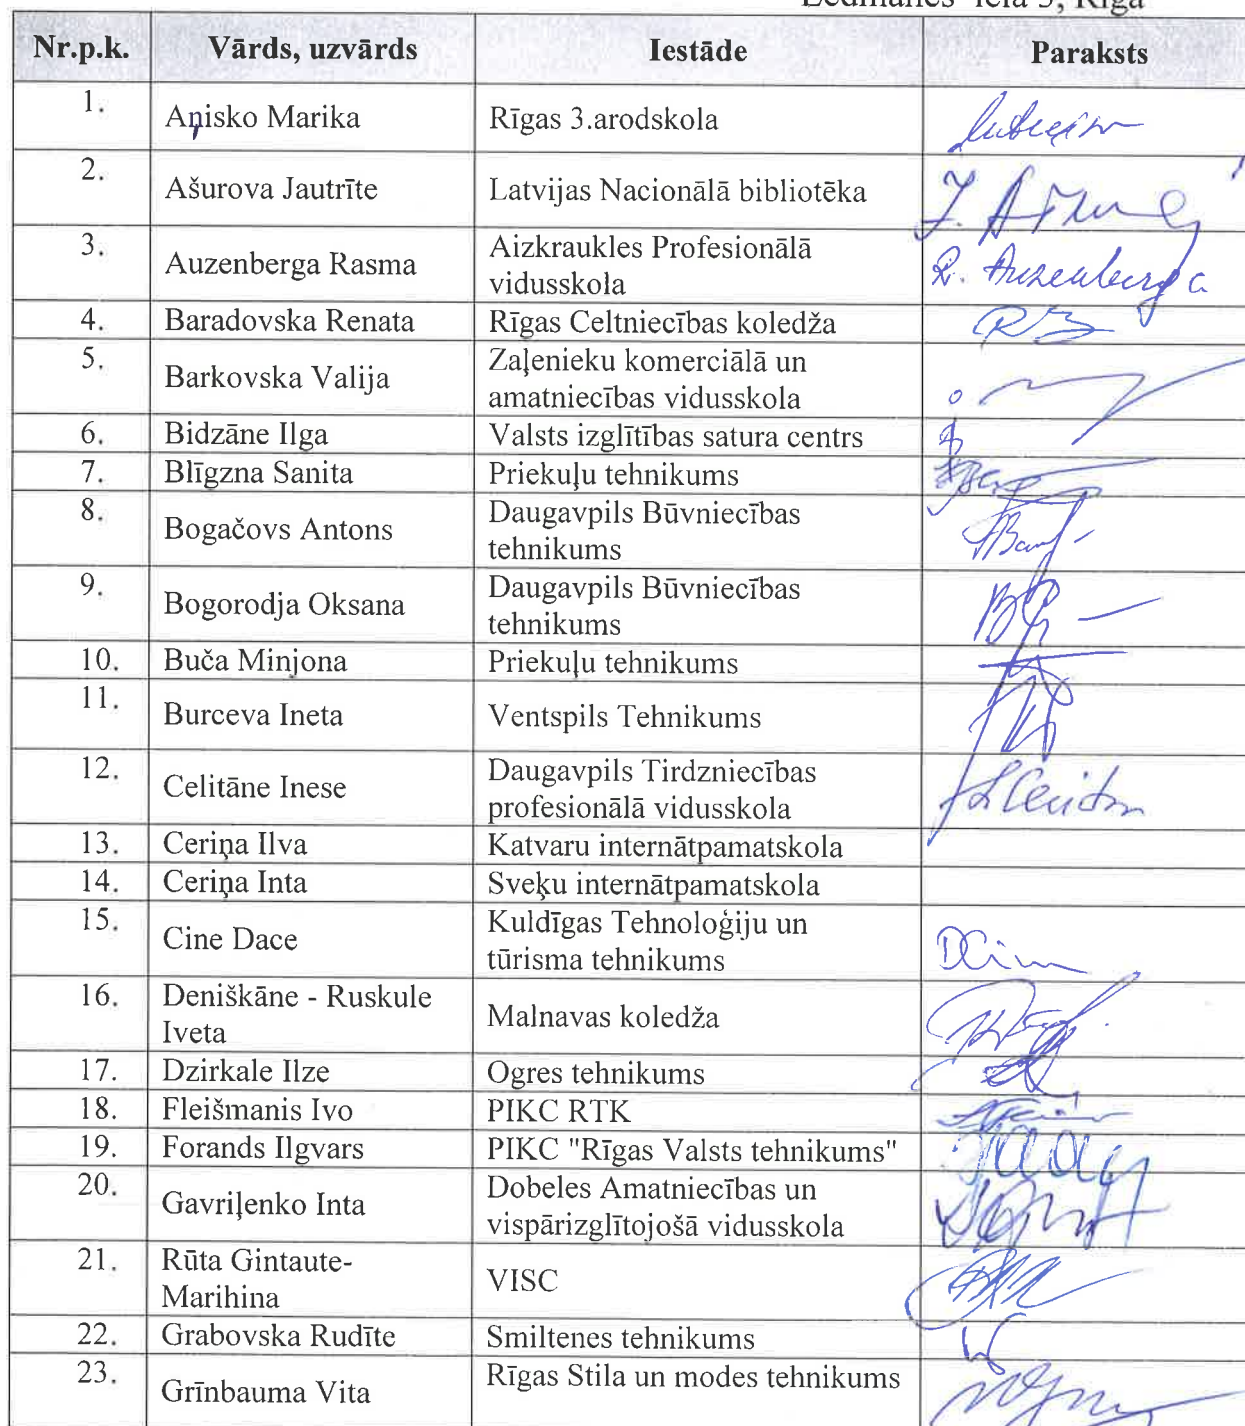 Lēdmanes iela 3, Rīga
Nr.p.k. Vārds, uzvārds Iestāde Paraksts
1. Aņisko Marika Rīgas 3.arodskola
2. Ašurova Jautrīte Latvijas Nacionālā bibliotēka
3. Auzenberga Rasma Aizkraukles Profesionālā
vidusskola R. Auzenberga
4. Baradovska Renata Rīgas Celtniecības koledža
5. Barkovska Valija Zaļenieku komerciālā un
amatniecības vidusskola
6. Bidzāne Ilga Valsts izglītības satura centrs
7. Blīgzna Sanita Priekuļu tehnikums
8. Bogačovs Antons Daugavpils Būvniecības
tehnikums
9. Bogorodja Oksana Daugavpils Būvniecības
tehnikums
10. Buča Minjona Priekuļu tehnikums
11. Burceva Ineta Ventspils Tehnikums
12. Celitāne Inese Daugavpils Tirdzniecības
profesionālā vidusskola
13. Ceriņa Ilva Katvaru internātpamatskola
14. Ceriņa Inta Sveķu internātpamatskola
15. Cine Dace Kuldīgas Tehnoloģiju un
tūrisma tehnikums
16. Deniškāne - Ruskule
Iveta Malnavas koledža
17. Dzirkale Ilze Ogres tehnikums
18. Fleišmanis Ivo PIKC RTK
19. Forands Ilgvars PIKC "Rīgas Valsts tehnikums"
20. Gavriļenko Inta Dobeles Amatniecības un
vispārizglītojošā vidusskola
21. Rūta Gintaute-
Marihina VISC
22. Grabovska Rudīte Smiltenes tehnikums
23. Grīnbauma Vita Rīgas Stila un modes tehnikums